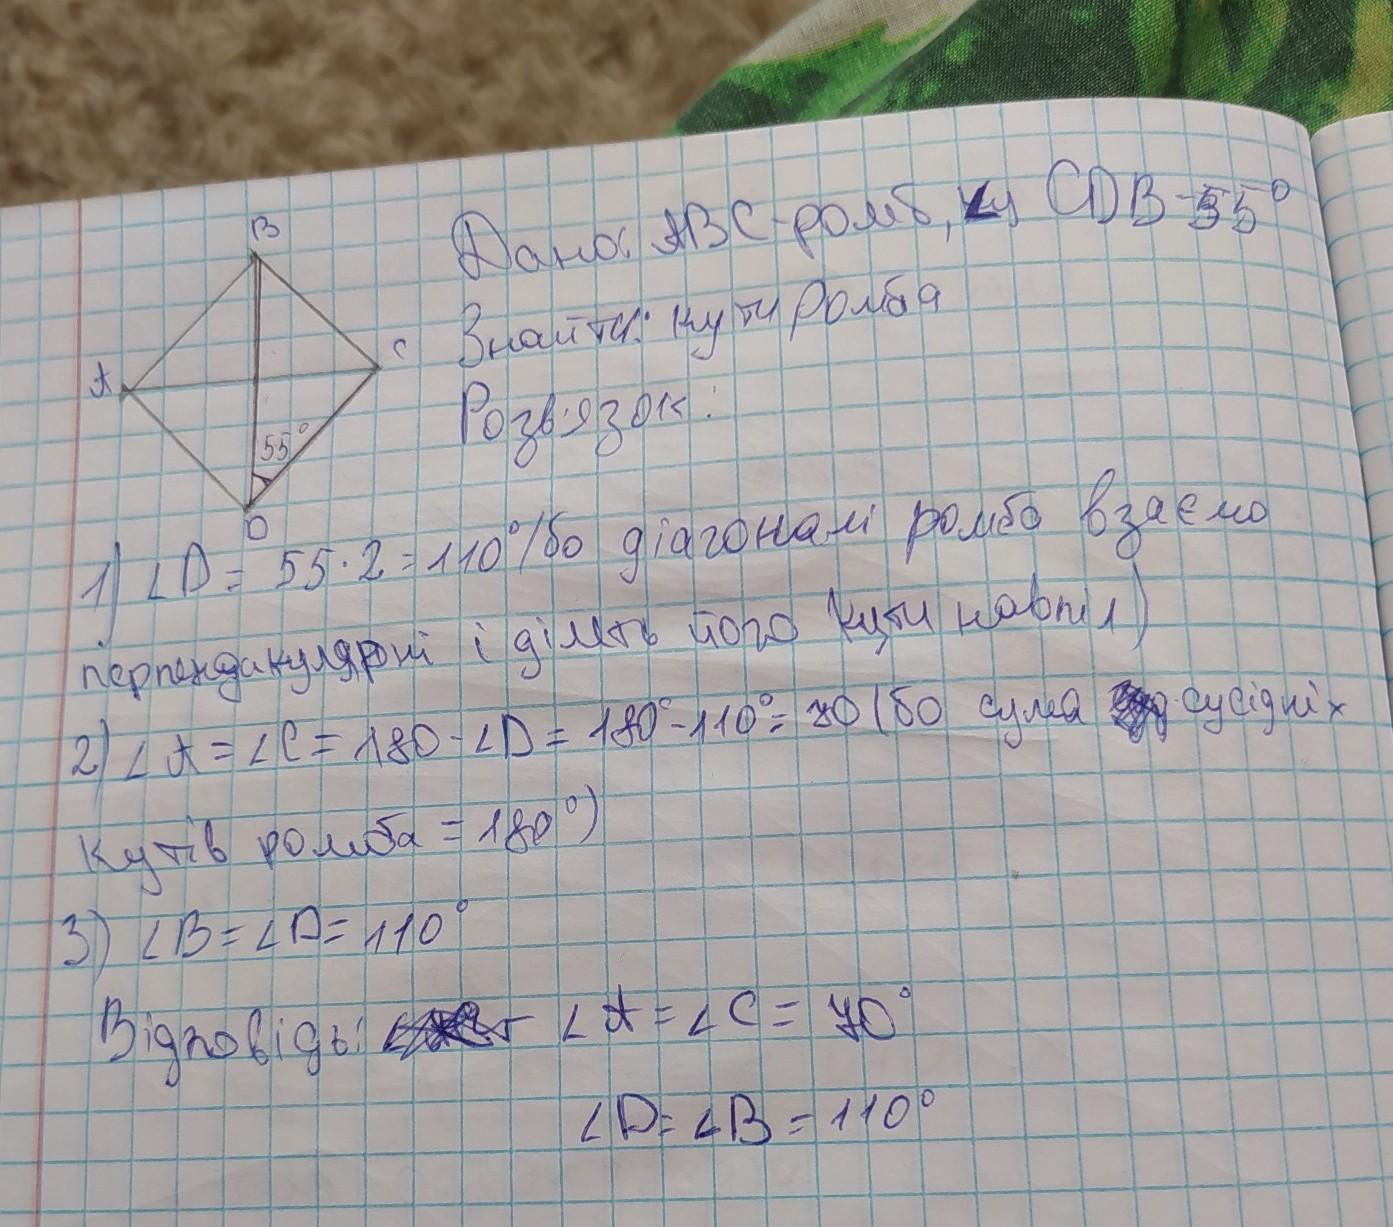 B
Дано: ABC-ромб, ∠у CDB-55°
A
C
Знайти: кути ромба
Розв'язок:
55°
D
1) ∠D = 55·2=110° (бо діагоналі ромба взаємо
перпендикулярні і ділять його кути навпіл)
2) ∠A = ∠C = 180 - ∠D = 180° - 110° = 70 (бо сума сусідніх
кутів ромба = 180°)
3) ∠B = ∠D = 110°
Відповідь: ∠A = ∠C = 70°
∠D = ∠B = 110°